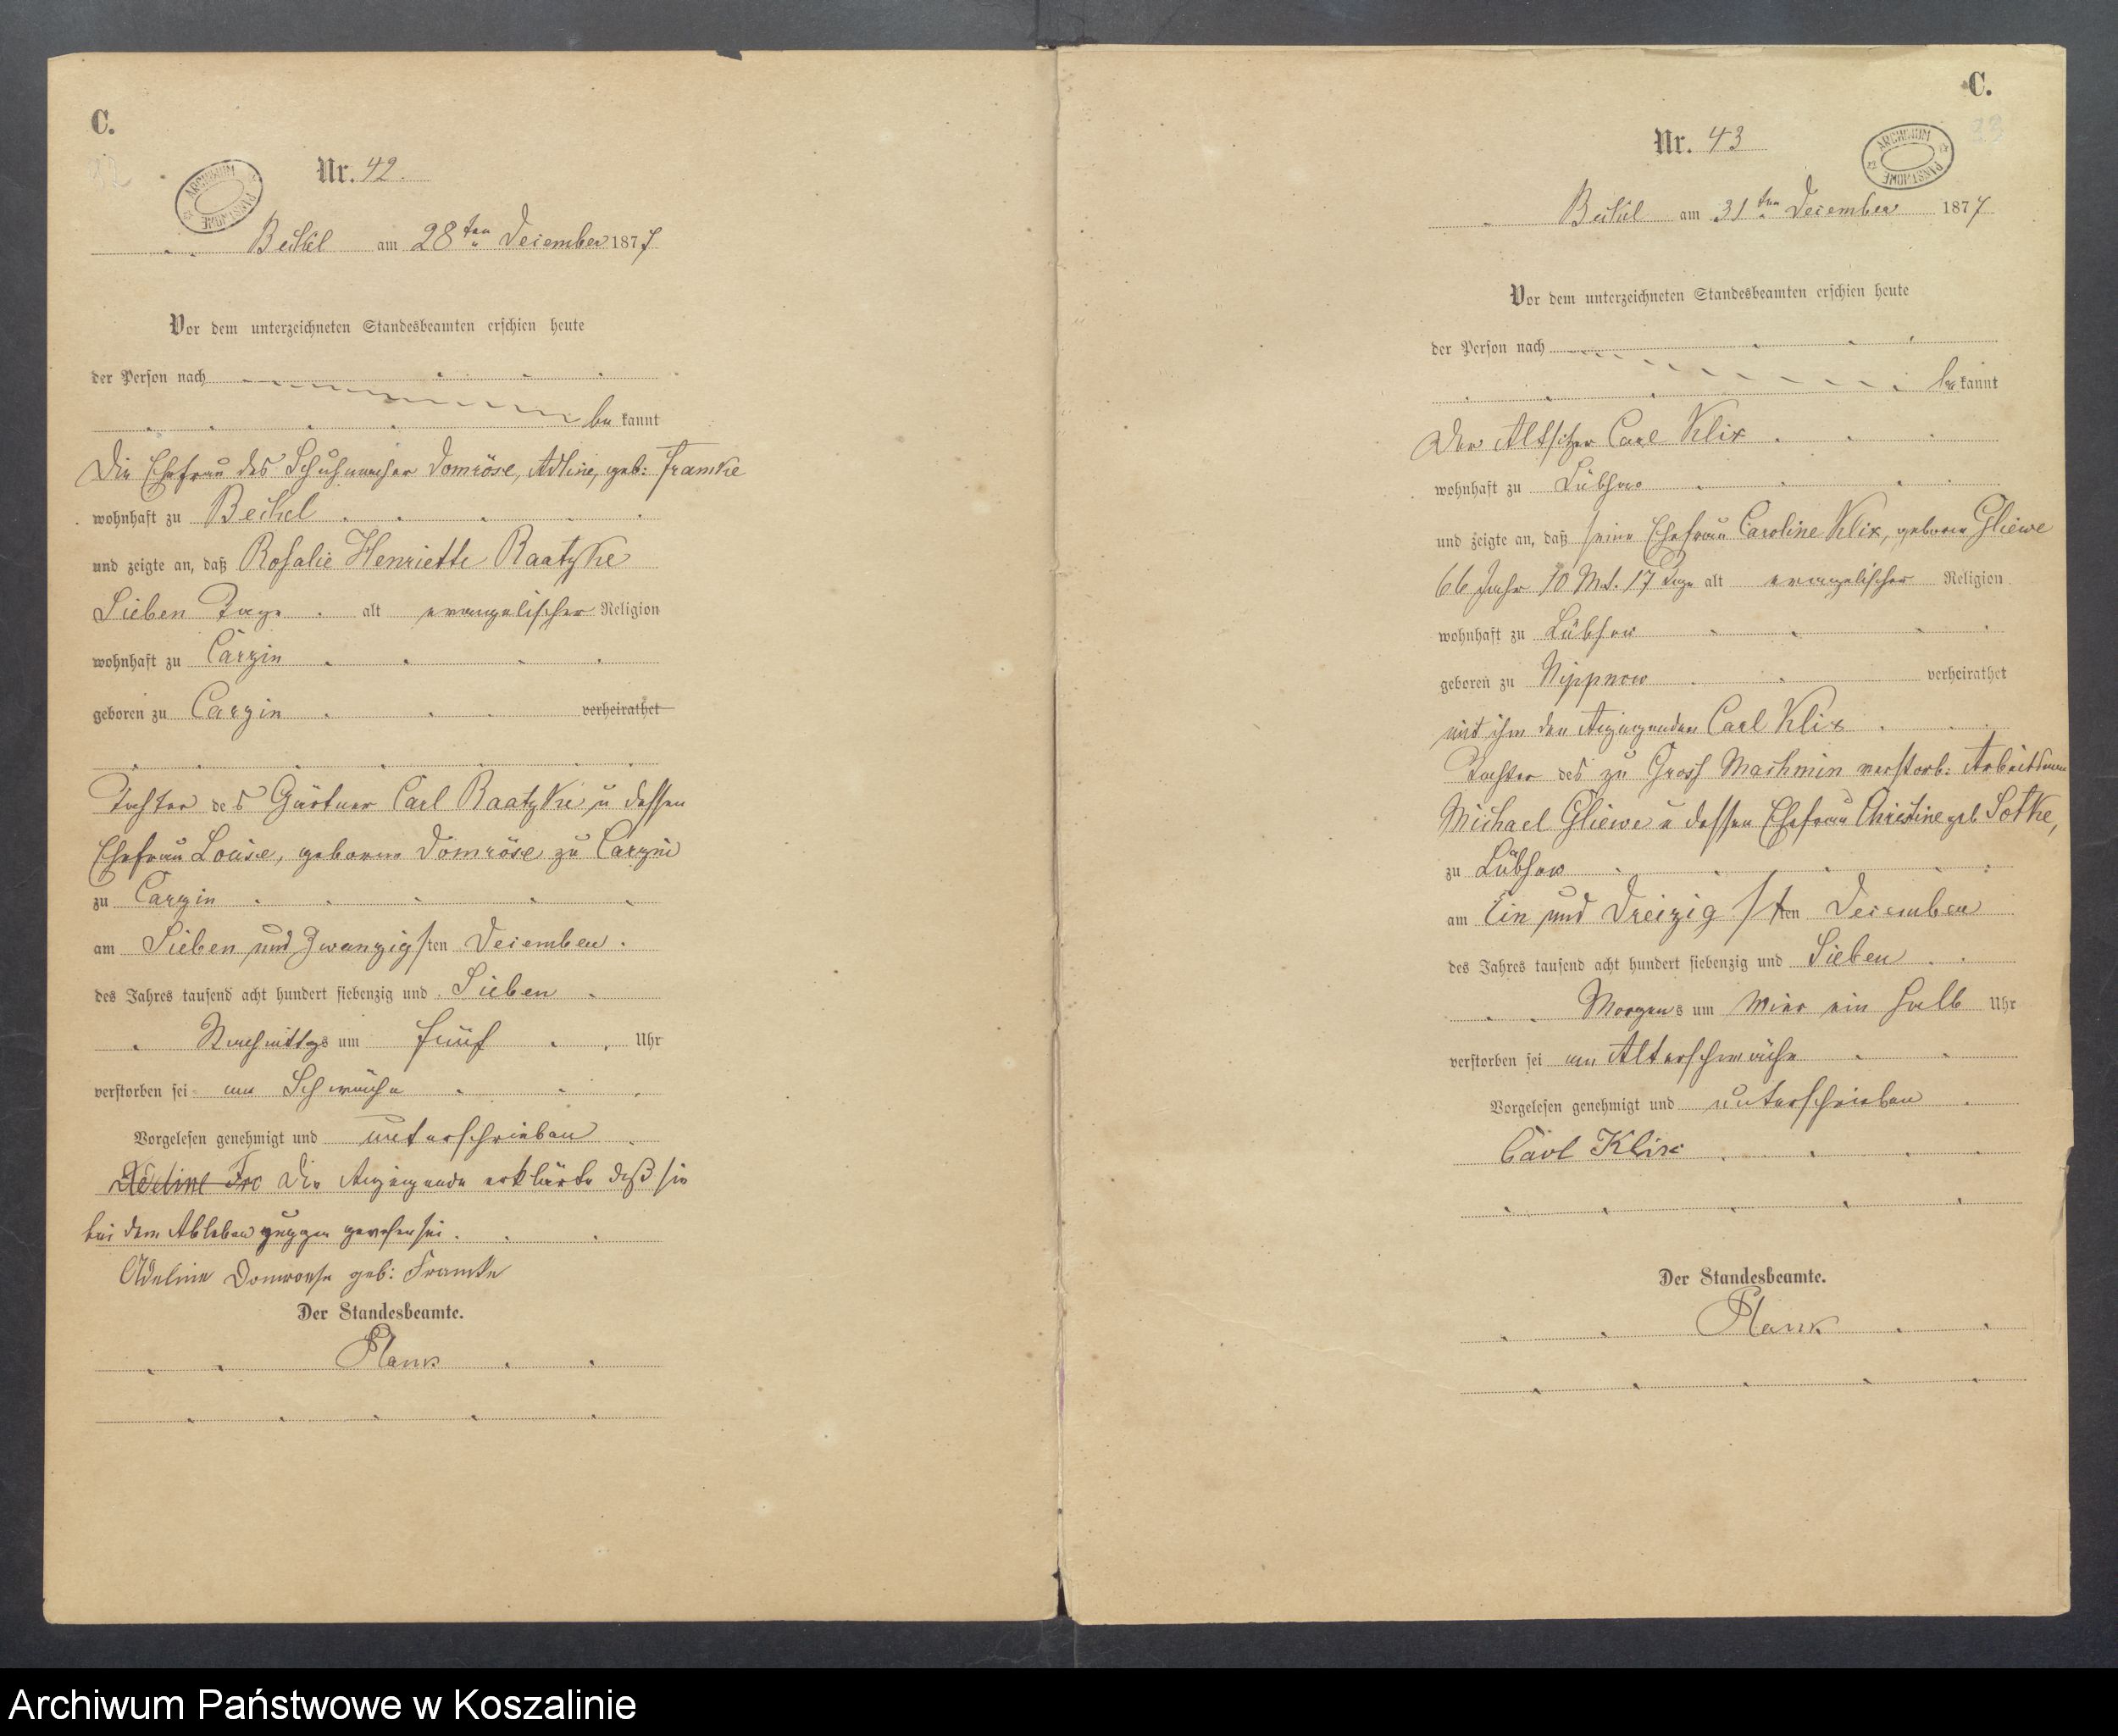 C.
Nr. 42.
Beckel am 28ten December 1877
Vor dem unterzeichneten Standesbeamten erschien heute
der Person nach
be kannt
Die Ehefrau des Schuhmacher Domröse, Adline, geb: Framke
wohnhaft zu Beckel
und zeigte an, daß Rosalie Henriette Raatzke
Sieben Tage alt evangelischer Religion
wohnhaft zu Carzin
geboren zu Carzin verheirathet
Tochter des Gärtner Carl Raatzke u dessen
Ehefrau Louise, geborene Domröse zu Carzin
zu Carzin
am Sieben und Zwanzigsten December
des Jahres tausend acht hundert siebenzig und Sieben
Nachmittgs um fünf Uhr
verstorben sei an Schwäche
Vorgelesen genehmigt und unterschrieben
Adeline Fra Die Anzeigende erklärte daß sie
bei dem Ableben zugegen gewesen sei.
Adeline Domroese geb: Framke
Der Standesbeamte.
Plank
C.
Nr. 43
ARCHIWUM PAŃSTWOWE
Beckel am 31ten December 1877
Vor dem unterzeichneten Standesbeamten erschien heute
der Person nach
be kannt
Der Altsitzer Carl Klix
wohnhaft zu Lübzow
und zeigte an, daß seine Ehefrau Caroline Klix, geborene Gliewe
66 Jahr 10 Mt. 17 Tage alt evangelischer Religion
wohnhaft zu Lübzow
geboren zu Nippnow verheirathet
mit ihm den Anzeigenden Carl Klix
Tochter des zu Gross Machmin verstorb: Arbeitsmann
Michael Gliewe u dessen Ehefrau Christine geb Sotke,
zu Lübzow
am Ein und Dreizig sten December
des Jahres tausend acht hundert siebenzig und Sieben
Morgens um Vier ein halb Uhr
verstorben sei an Altersschwäche
Vorgelesen genehmigt und unterschrieben
Carl Klix
Der Standesbeamte.
Plank
Archiwum Państwowe w Koszalinie